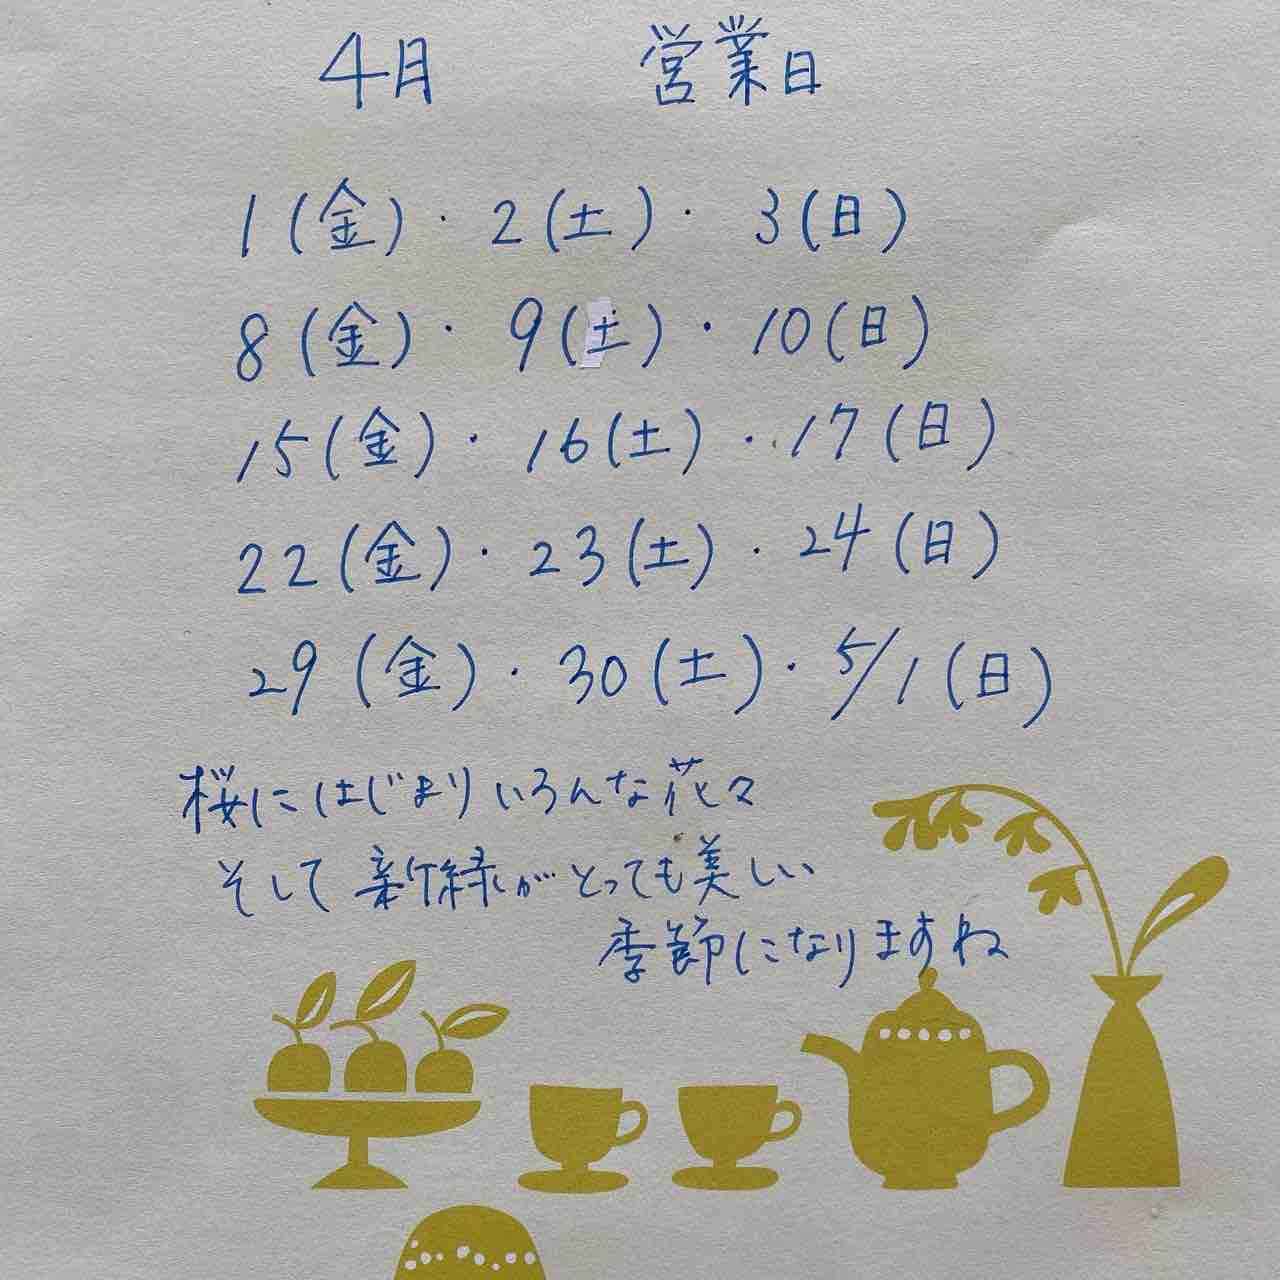 4月 営業日
1(金)・2(土)・3(日)
8(金)・9(土)・10(日)
15(金)・16(土)・17(日)
22(金)・23(土)・24(日)
29(金)・30(土)・5/1(日)
桜にはじまりいろんな花々
そして新緑がとっても美しい
季節になりますね